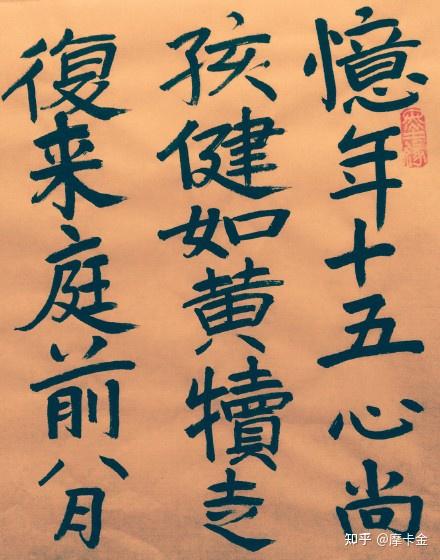 憶年十五心尚
孩健如黄犢走
復来庭前八月
知乎 @摩卡金